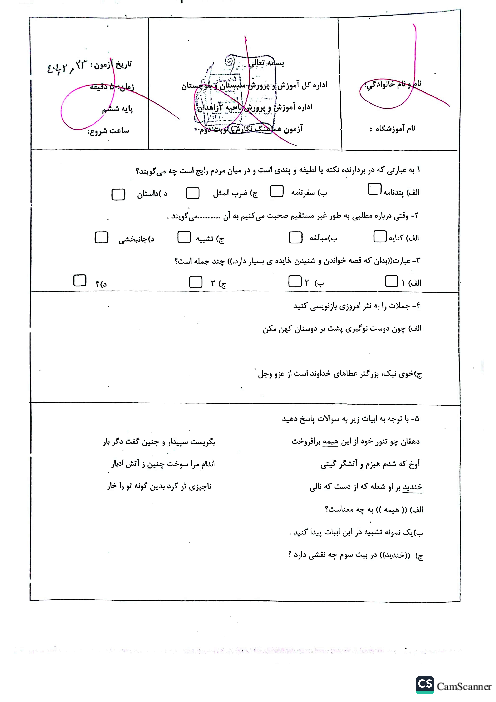 بسمه تعالی
تاریخ آزمون:
نام و نام خانوادگی:
اداره کل آموزش و پرورش سیستان و بلوچستان
زمان: ۵۰ دقیقه
اداره آموزش و پرورش ناحیه ۲ زاهدان
پایه ششم
نام آموزشگاه :
آزمون هماهنگ نگارش نوبت دوم
ساعت شروع:
۱ به عبارتی که در بردارنده نکته یا لطیفه و پندی است و در میان مردم رایج است چه می‌گویند؟
الف) پندنامه ب) سفرنامه ج) ضرب المثل د )داستان
۲- وقتی درباره مطلبی به طور غیر مستقیم صحبت می‌کنیم به آن ..........می‌گویند .
الف) کنایه ب)مبالغه ج) تشبیه د)جانبخشی
۳- عبارت((بدان که قصه خواندن و شنیدن فایده ی بسیار دارد.)) چند جمله است؟
الف) ۱ ب) ۲ ج) ۳ د)۴
۴- جملات را به نثر امروزی بازنویسی کنید
الف) چون دوست نوگیری پشت بر دوستان کهن مکن
ج)خوی نیک، بزرگتر عطاهای خداوند است از عزو وجل
۵- با توجه به ابیات زیر به سوالات پاسخ دهید
دهقان چو تنور خود از این هیمه برافروخت بگریست سپیدار و چنین گفت دگر بار
آوخ که شدم هیزم و آتشگر گیتی اندام مرا سوخت چنین و آتش ادبار
خندید بر او شعله که از دست که نالی ناچیزی تو کرد بدین گونه تو را خار
الف) (( هیمه )) به چه معناست؟
ب)یک نمونه تشبیه در این ابیات پیدا کنید .
ج) ((خندید)) در بیت سوم چه نقشی دارد ؟
CS CamScanner